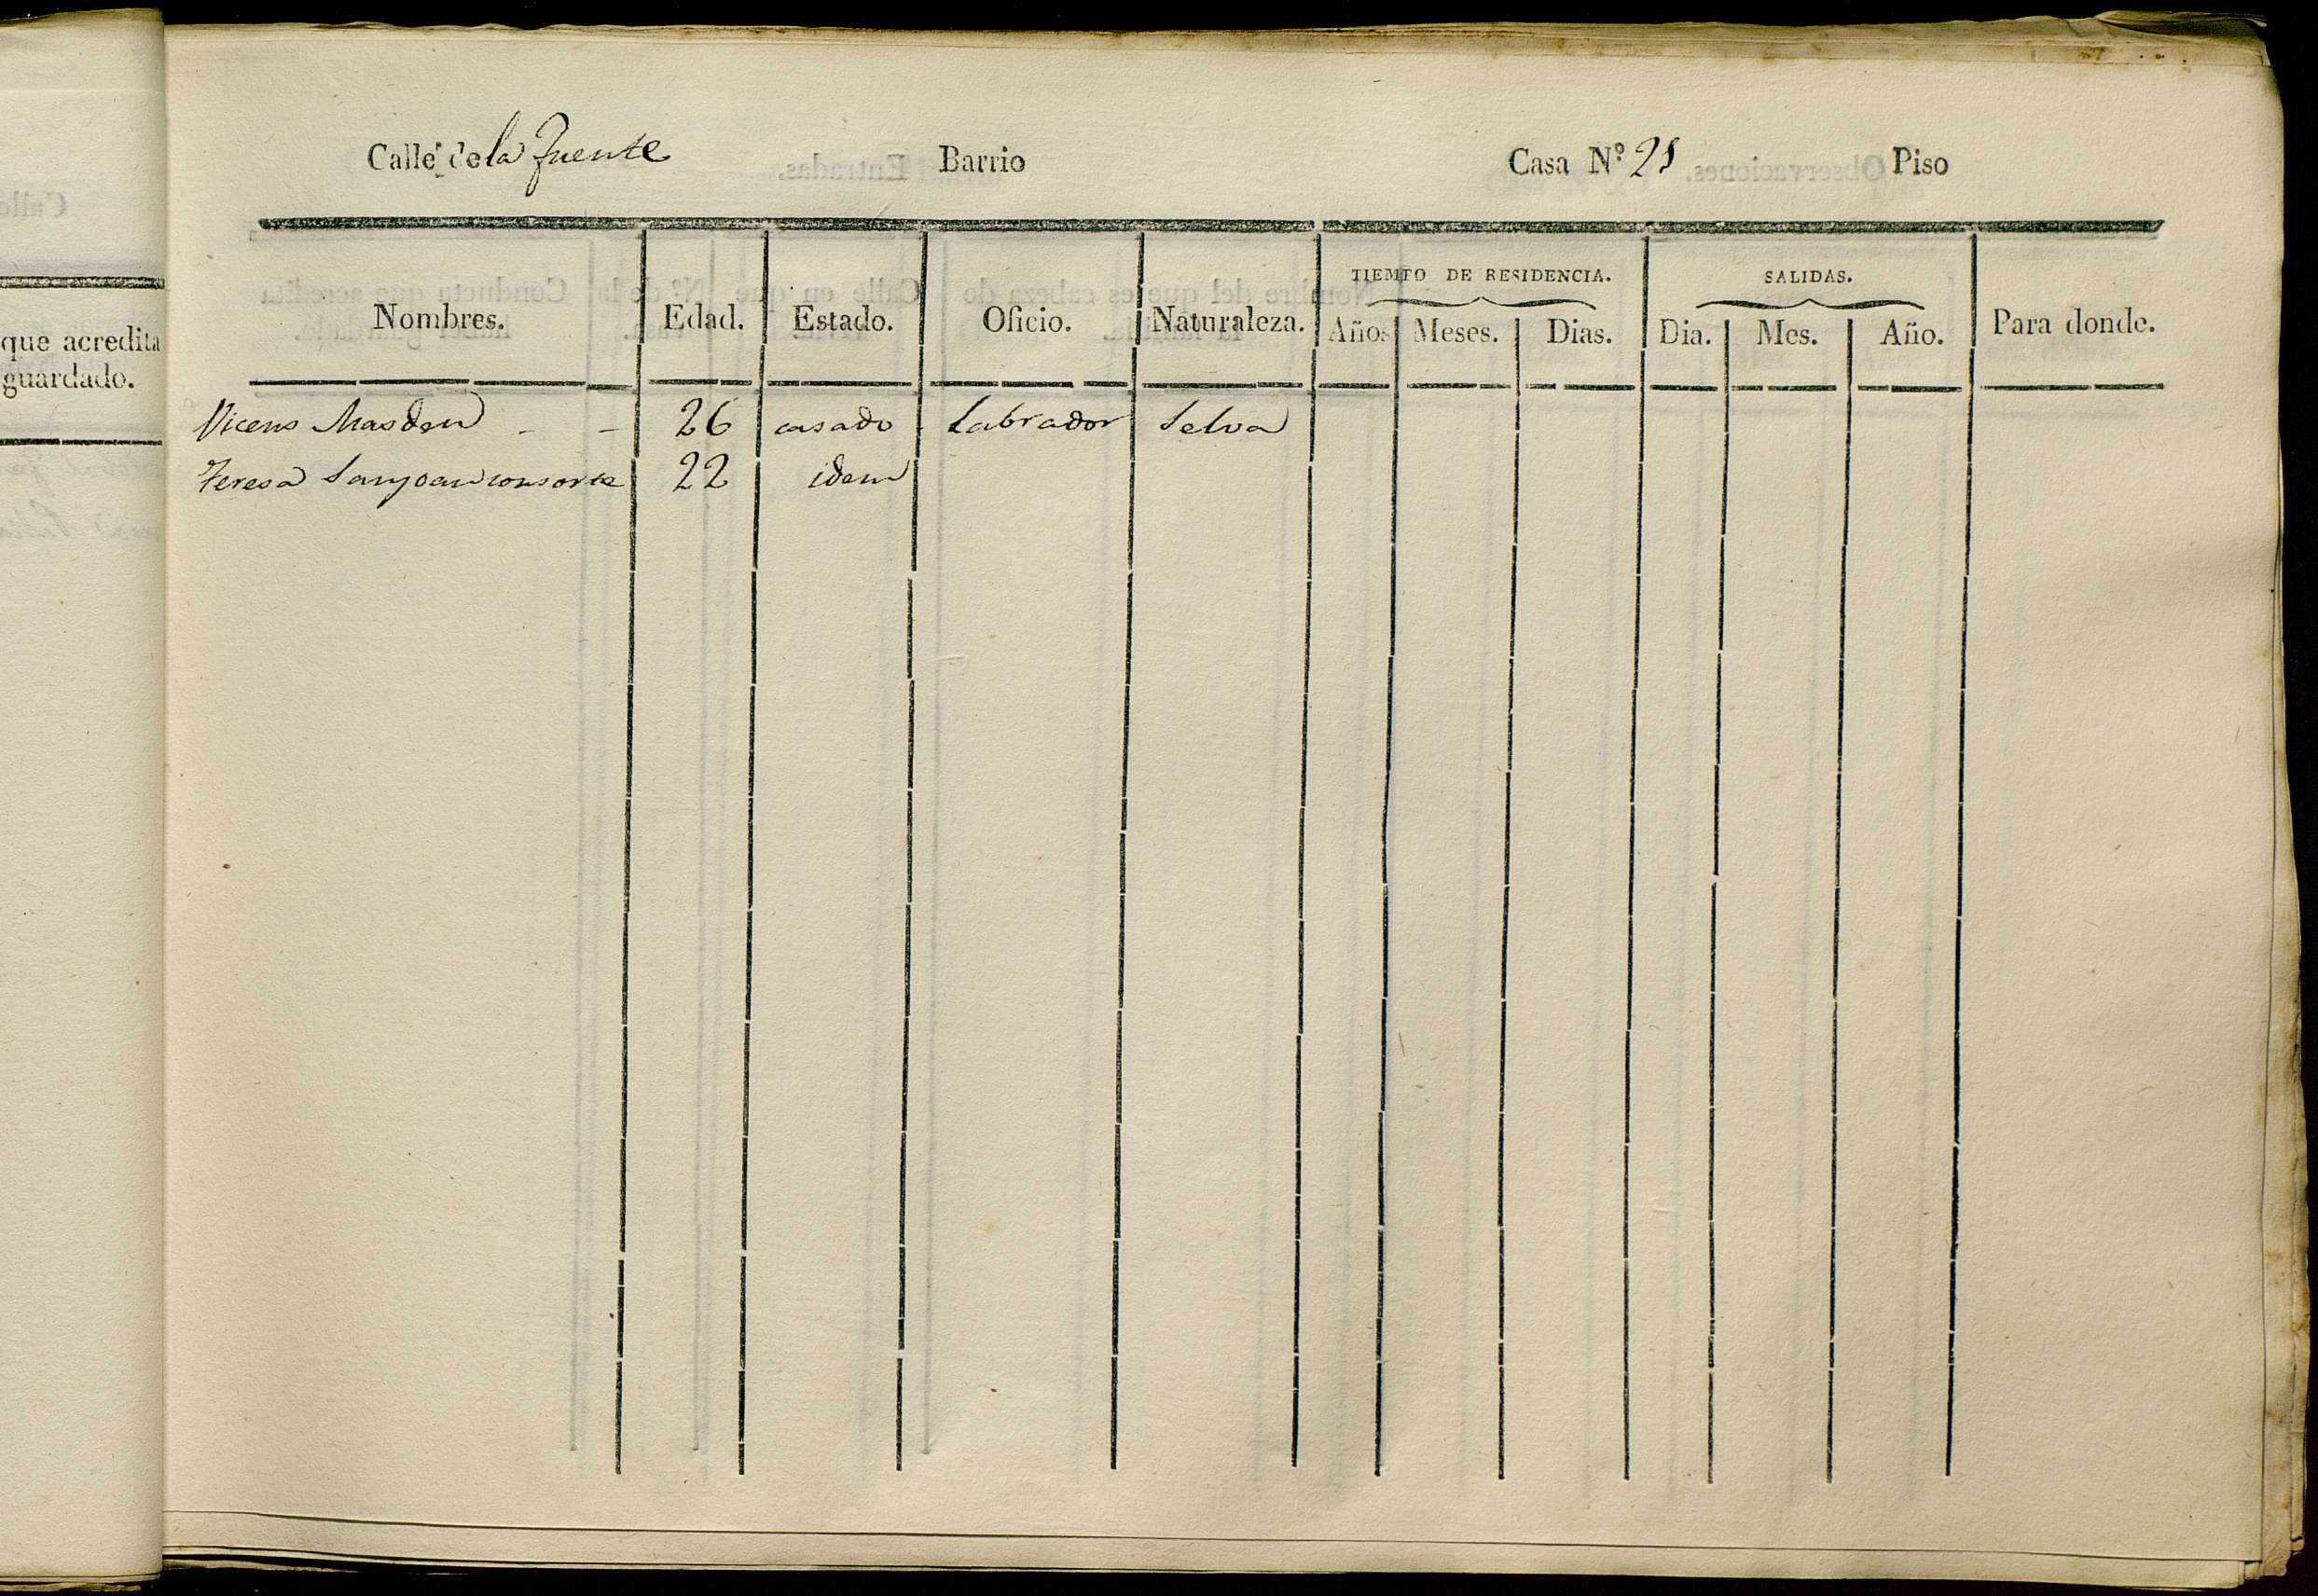 Calle de la Fuente Barrio Casa Nº 21 Piso
TIEMPO DE RESIDENCIA. SALIDAS.
Nombres. Edad. Estado. Oficio. Naturaleza. Años Meses. Dias. Dia. Mes. Año. Para donde.
que acredita
guardado.
Vicens Masdeu - - 26 casado - Labrador Selva
Teresa consorte 22 idem